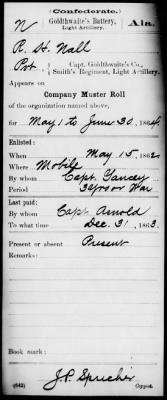 (Confederate.)
N Goldthwaite's Battery, Light Artillery. Ala.
R. H. Nall
Pvt { Capt. Goldthwaite's Co., Smith's Regiment, Light Artillery.
Appears on
Company Muster Roll
of the organization named above,
for May 1 to June 30, 1864.
Enlisted:
When May 15, 1862
Where Mobile
By whom Capt. Yancey
Period 3 yrs or War
Last paid:
By whom Capt. Arnold
To what time Dec. 31, 1863.
Present or absent Present
Remarks:
Book mark:
(642) J. P. Sprecher
Copyist.